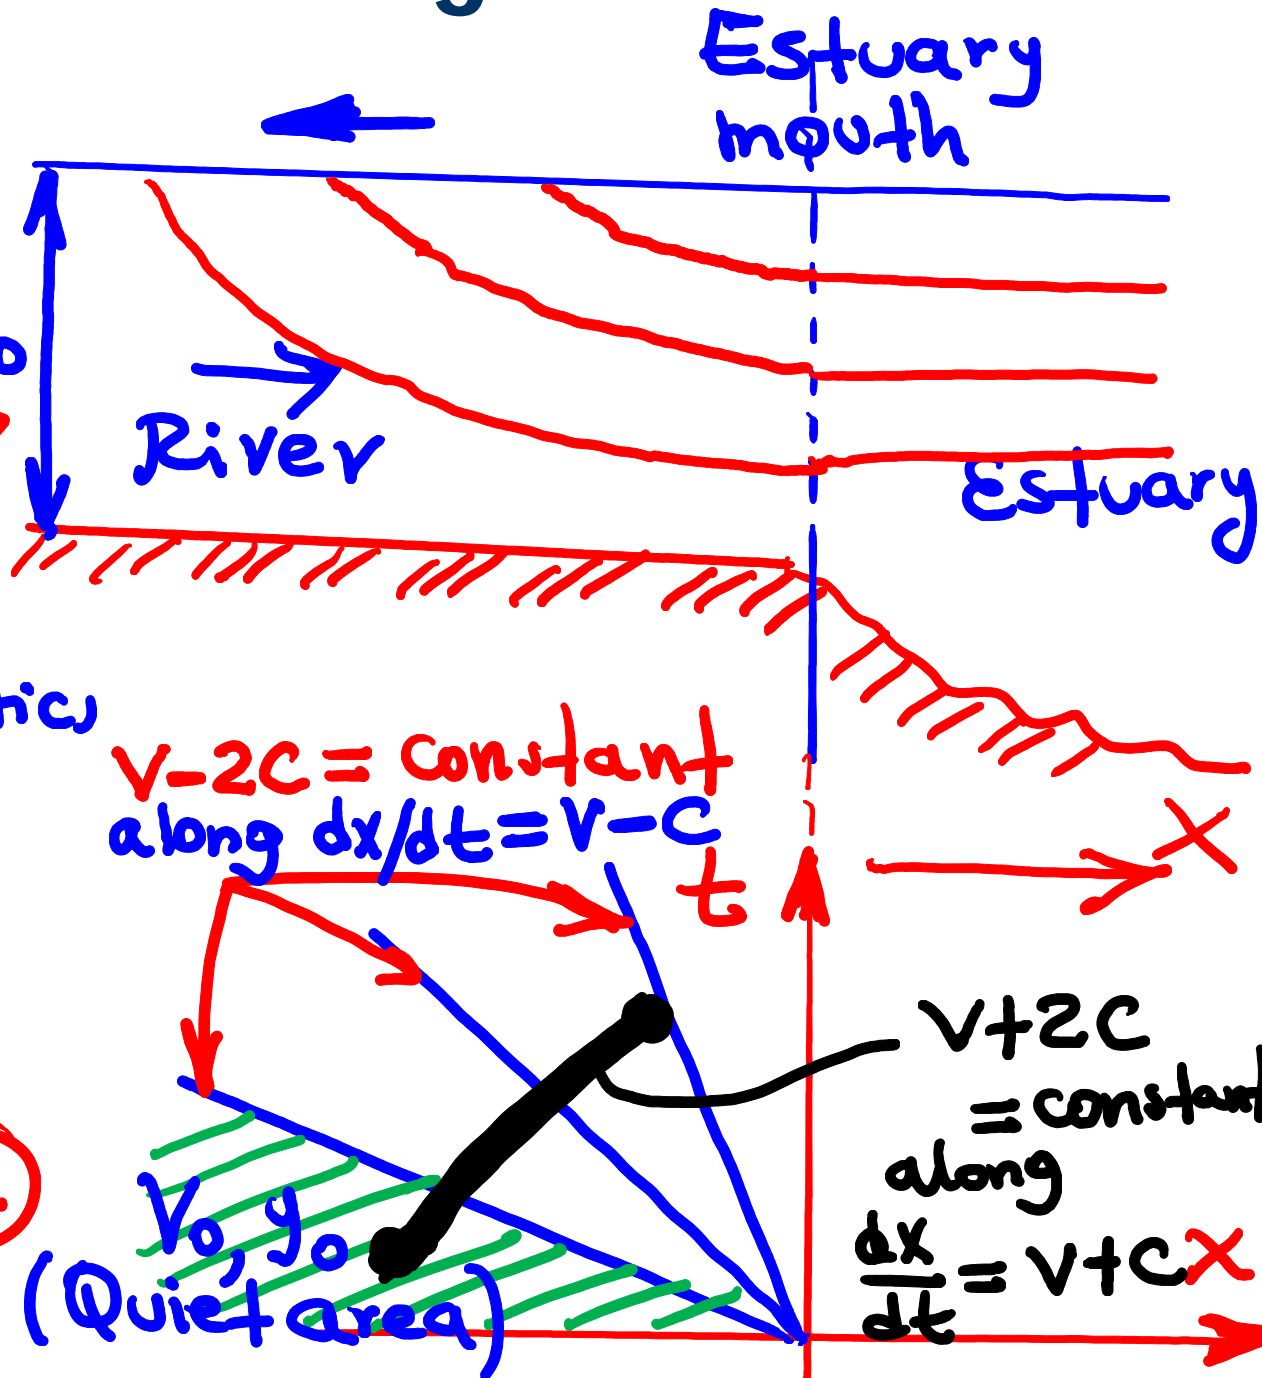 Estuary
mouth
River
Estuary
V-2C = constant
along dx/dt = V-C
t
X
V+2C
= constant
along
dx/dt = V+C
X
V₀, y₀
(Quiet area)